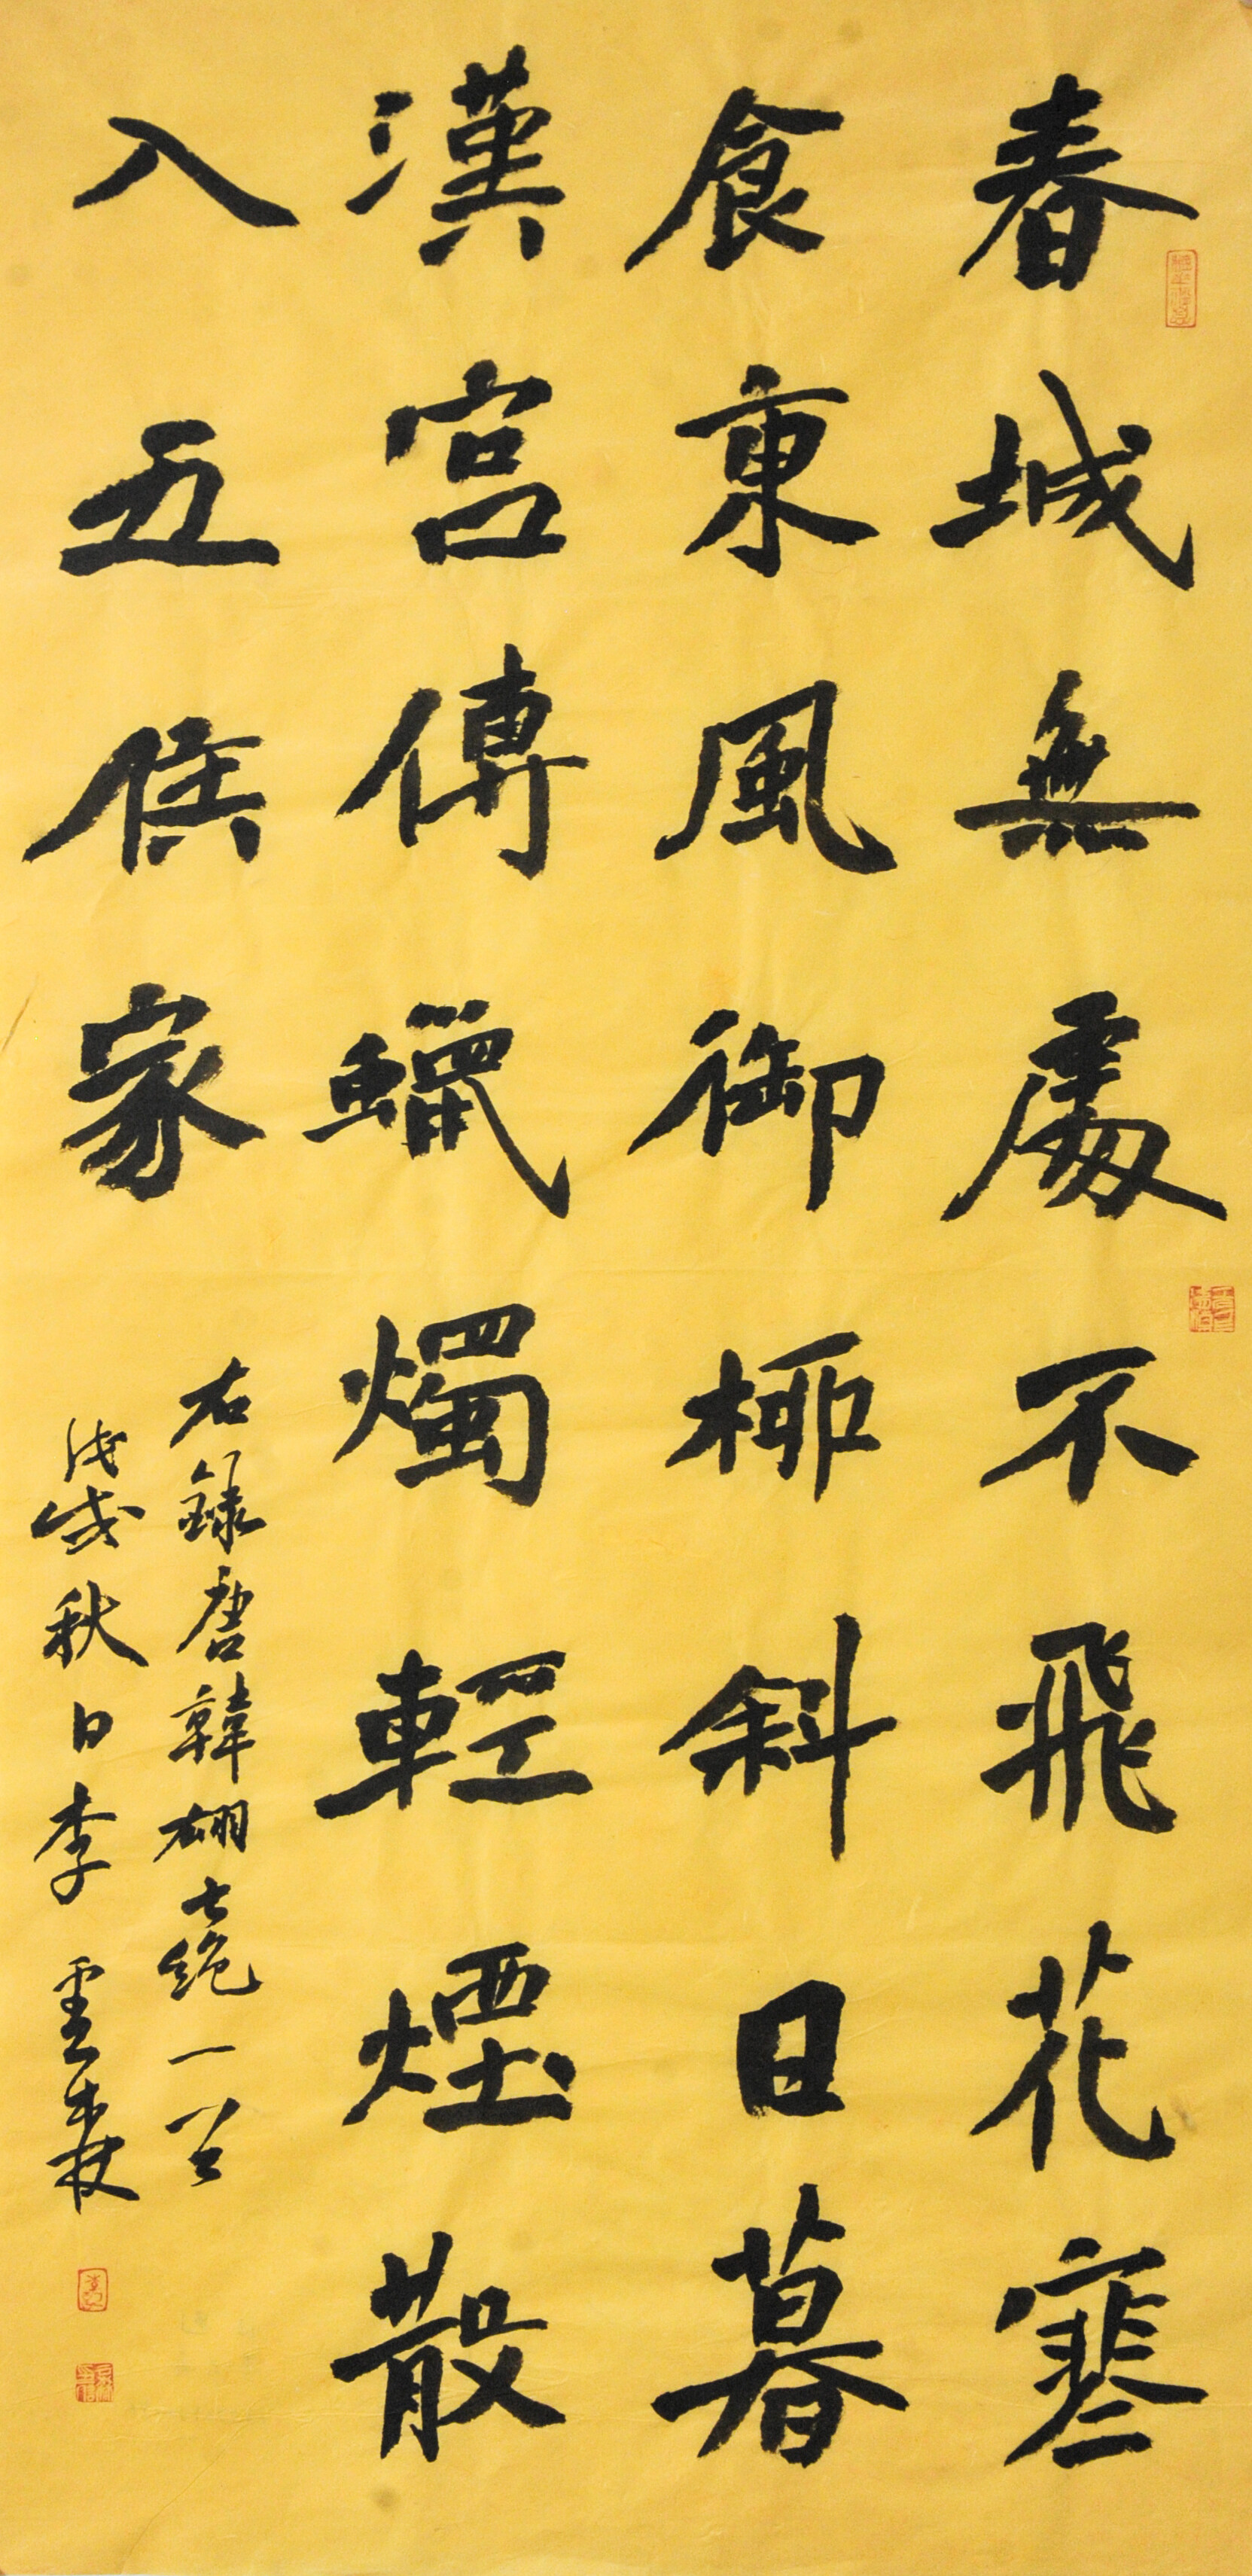 春城無處不飛花寒
食東風御柳斜日暮
漢宮傳蠟燭輕煙散
入五侯家
右錄唐韓翃七絕一首
戊戌秋日李